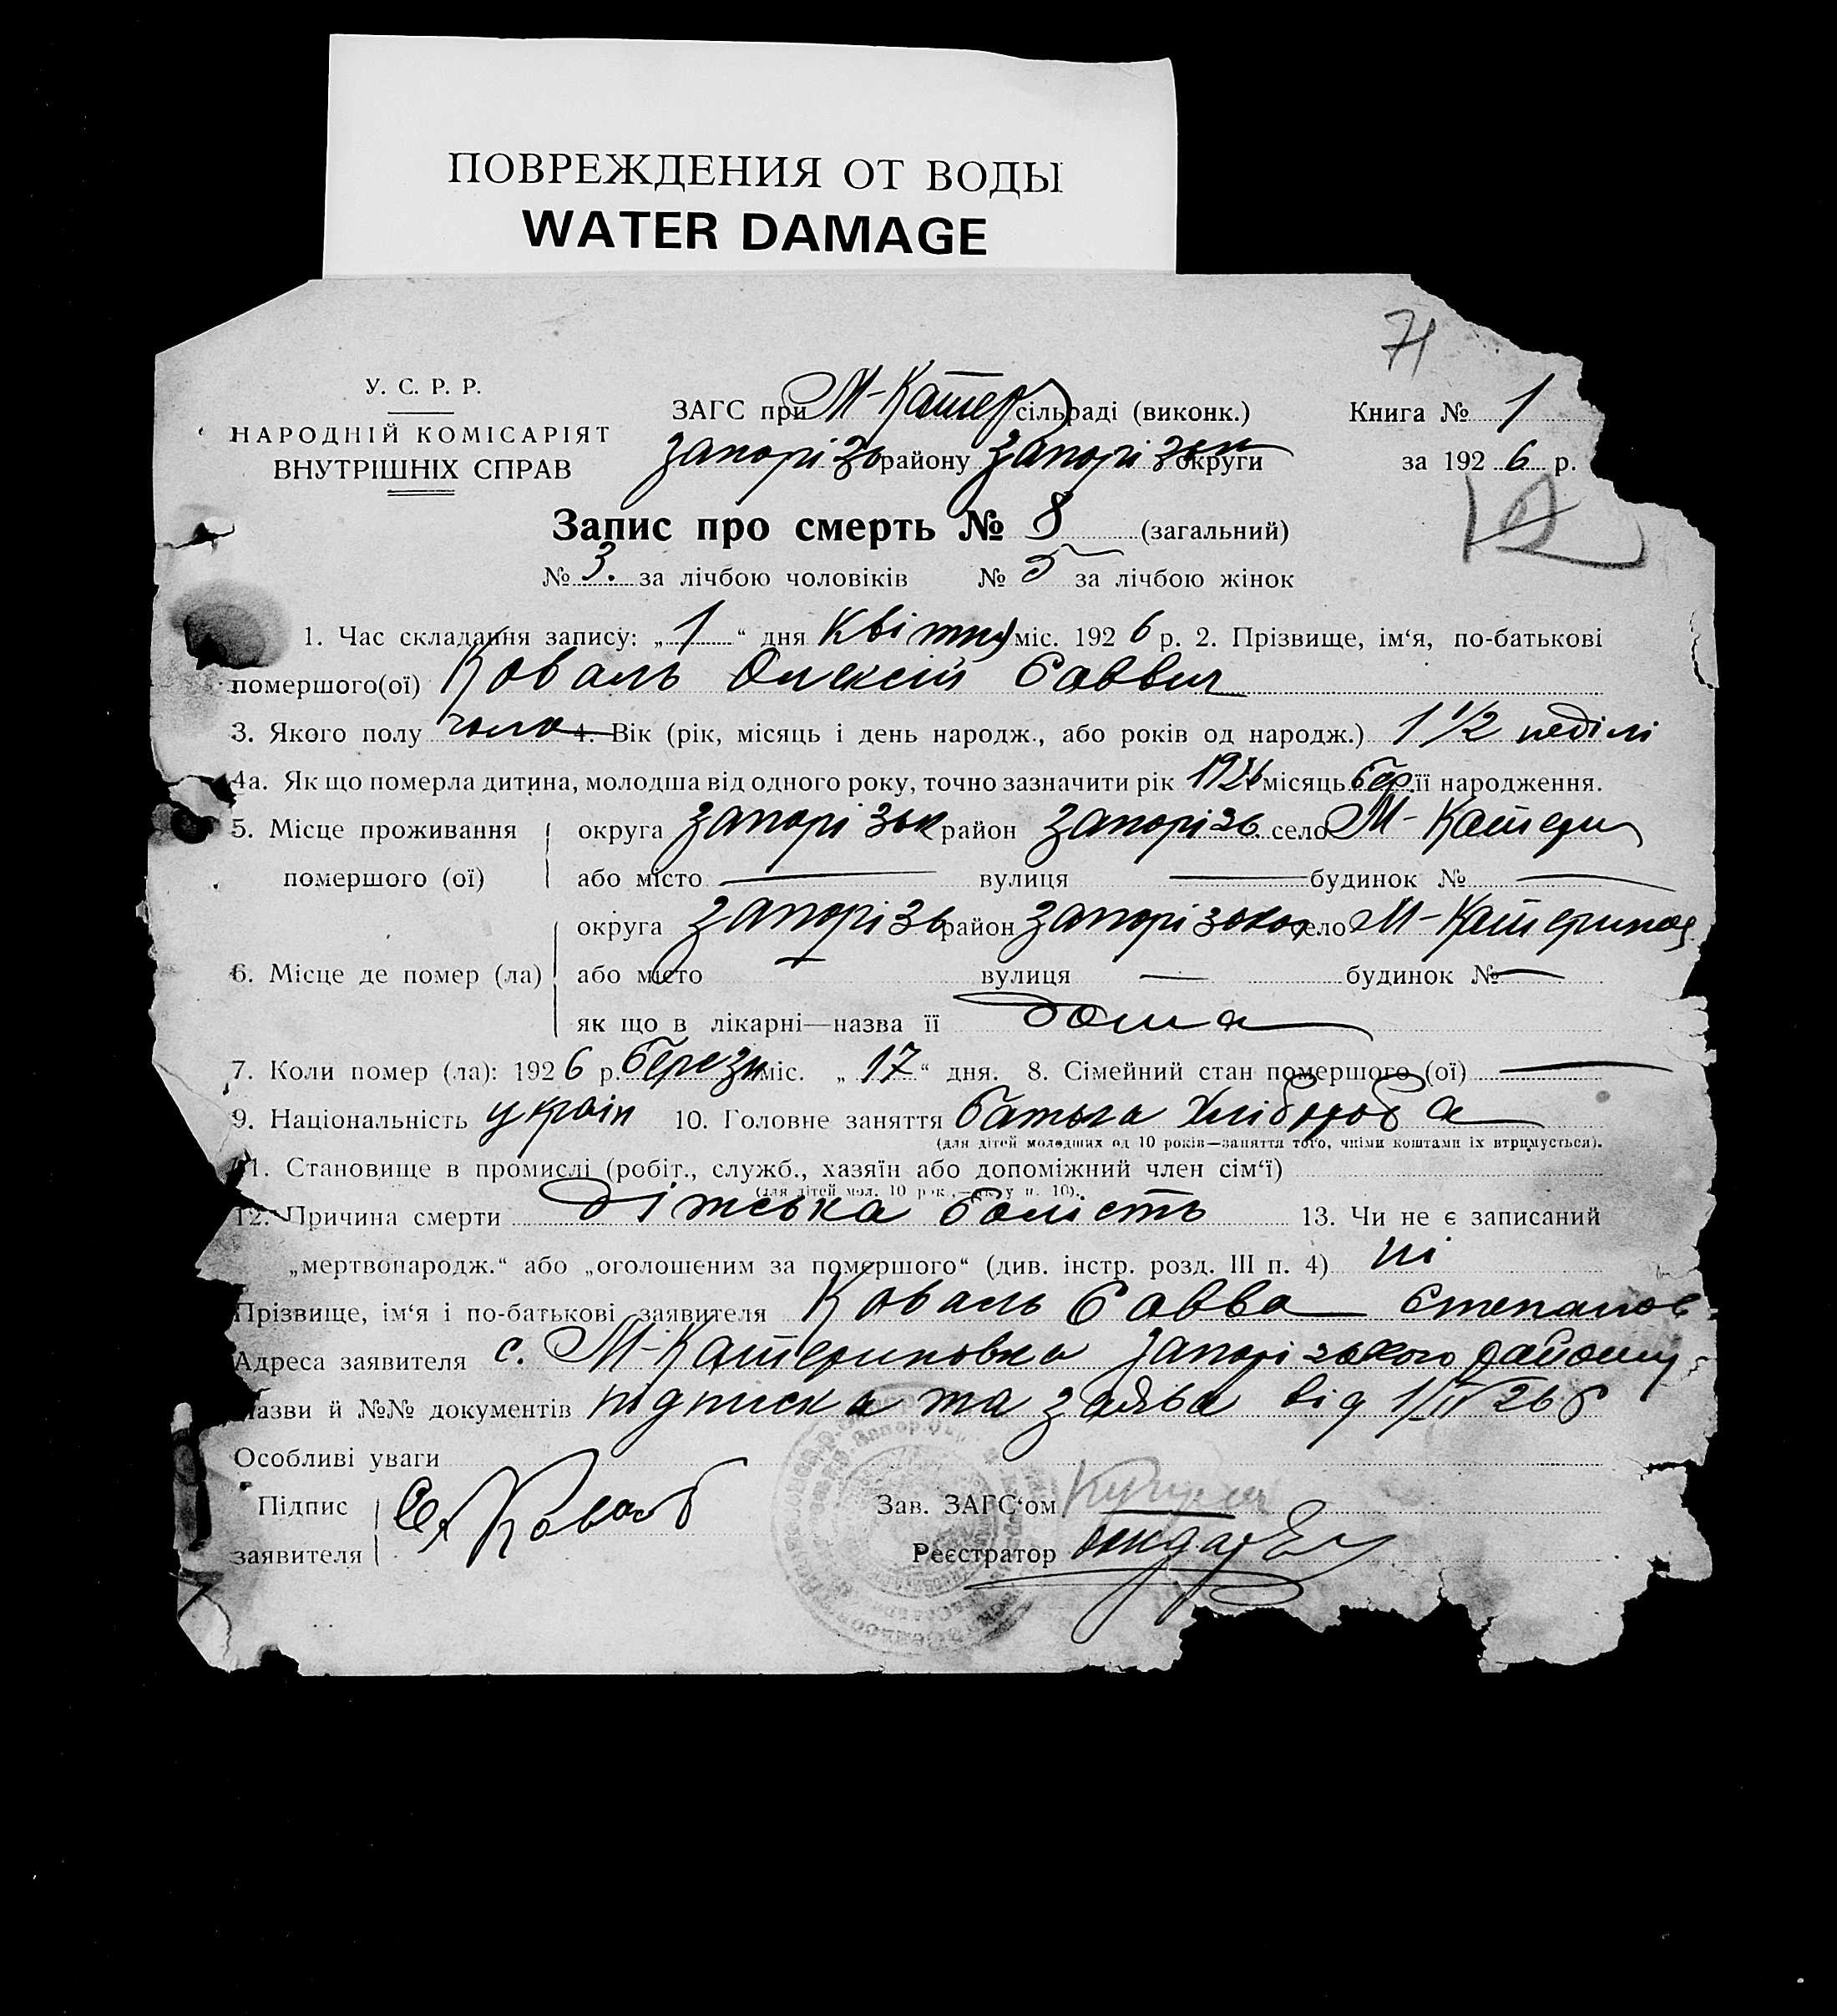 ПОВРЕЖДЕНИЯ ОТ ВОДЫ
WATER DAMAGE
71
У. С. Р. Р.
НАРОДНІЙ КОМІСАРІЯТ
ВНУТРІШНІХ СПРАВ
ЗАГС при М-Катер сільраді (виконк.)
Запорізь району Запорізьк округи
Книга № 1
за 1926 р.
Запис про смерть № 8 (загальний)
№ 3. за лічбою чоловіків № 5 за лічбою жінок
1. Час складання запису: „1“ дня Квітня міс. 1926 р. 2. Прізвище, ім‘я, по-батькові
помершого(ої) Коваль Олексій Саввич
3. Якого полу чоло 4. Вік (рік, місяць і день народж., або років од народж.) 1 1/2 неділі
4а. Як що померла дитина, молодша від одного року, точно зазначити рік 1926 місяць бер. її народження.
5. Місце проживання помершого (ої) округа Запорізьк район Запорізь село М-Катерин
або місто — вулиця — будинок № —
6. Місце де помер (ла) округа Запорізь район Запорізького село М-Катериновц
або місто — вулиця — будинок № —
як що в лікарні—назва її дома
7. Коли помер (ла): 1926 р. березн міс. „17“ дня. 8. Сімейний стан помершого (ої) —
9. Національність україн 10. Головне заняття батька Хлібороба
(для дітей молодших од 10 років—заняття того, чиїми коштами їх втримується).
11. Становище в промислі (робіт., служб., хазяїн або допоміжний член сім‘ї)
(для дітей мол. 10 рок.,— у п. 10).
12. Причина смерти дітська болість 13. Чи не є записаний
„мертвонародж.“ або „оголошеним за помершого“ (див. інстр. розд. III п. 4) ні
Прізвище, ім‘я і по-батькові заявителя Коваль Савва Степанов
Адреса заявителя с. М-Катериновка Запорізького району
Назви й №№ документів підписка та заява від 1/IV 26 р
Особливі уваги
Підпис заявителя Коваль
Зав. ЗАГС‘ом
Реєстратор